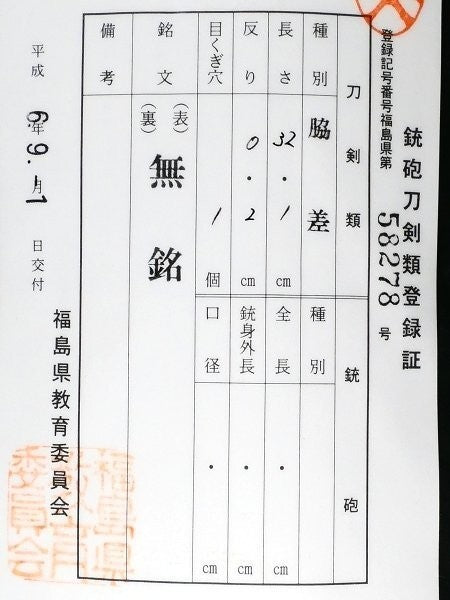 銃砲刀剣類登録証
登録記号番号福島県第58278号
刀剣類
銃砲
種別
脇差
種別
長さ
32.1cm
全長
.cm
反り
0.2cm
銃身外長
.cm
目くぎ穴
1個
口径
.cm
銘文
(表)
(裏)
無銘
備考
平成6年9.月-1日交付
福島県教育委員会
福島県
教育
委員会